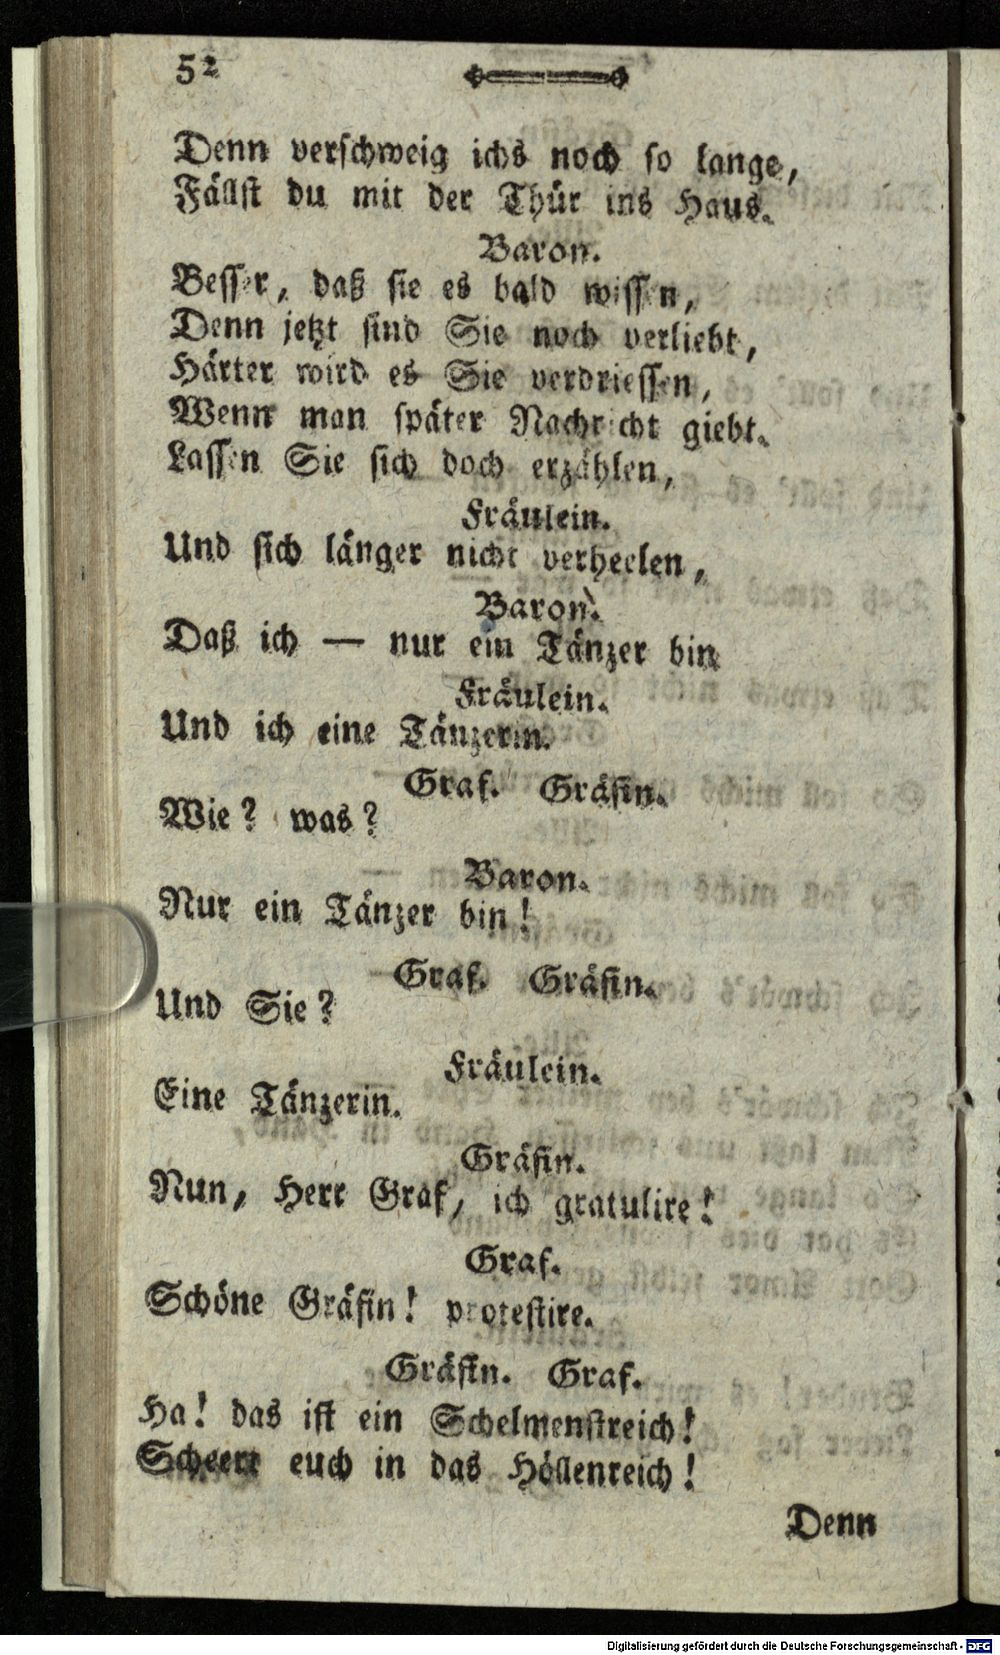 52
Denn verschweig ichs noch so lange,
Fällst du mit der Thür ins Haus.
Baron.
Besser, daß sie es bald wissen,
Denn jetzt sind Sie noch verliebt,
Härter wird es Sie verdriessen,
Wenn man später Nachricht giebt.
Lassen Sie sich doch erzählen,
Fräulein.
Und sich länger nicht verheelen,
Baron.
Daß ich — nur ein Tänzer bin
Fräulein.
Und ich eine Tänzerin.
Graf. Gräfin.
Wie? was?
Baron.
Nur ein Tänzer bin!
Graf. Gräfin.
Und Sie?
Fräulein.
Eine Tänzerin.
Gräfin.
Nun, Herr Graf, ich gratulire!
Graf.
Schöne Gräfin! protestire.
Gräfin. Graf.
Ha! das ist ein Schelmenstreich!
Scheert euch in das Höllenreich!
Denn
Digitalisierung gefördert durch die Deutsche Forschungsgemeinschaft - DFG